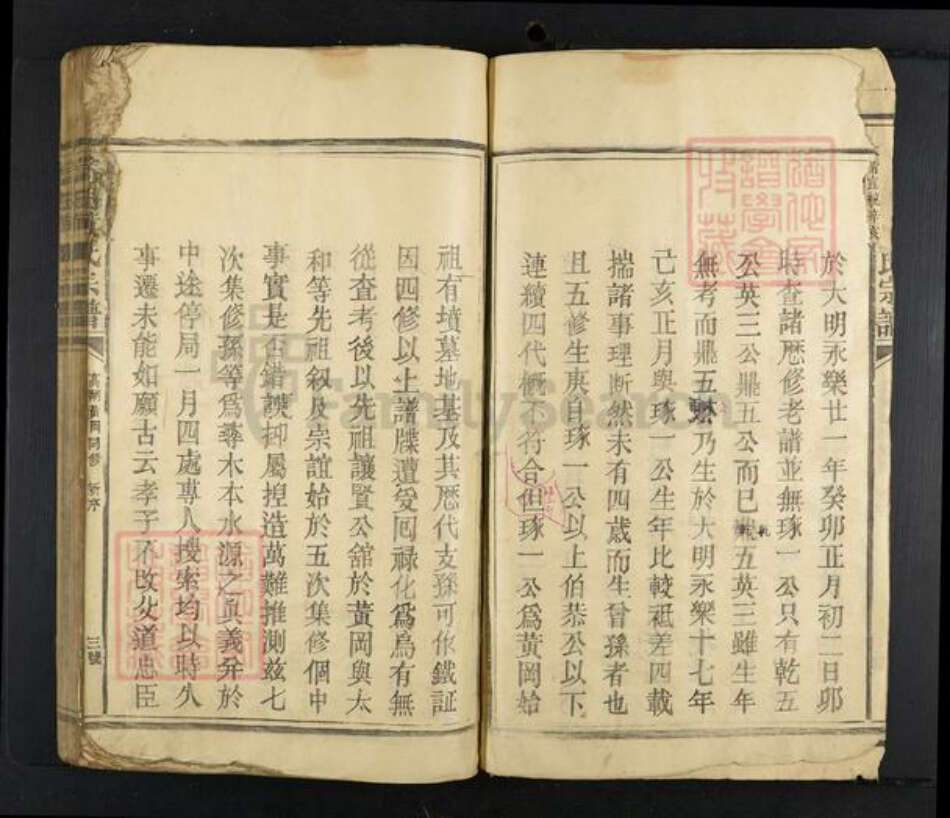 氏宗譜
於大明永樂廿一年癸卯正月初二日卯
時查諸歷修老譜並無琢一公只有乾五
公英三公鼎五公而已鼎五英三雖生年
無考而鼎五公乃生於大明永樂十七年
己亥正月與琢一公生年比較祗差四載
揣諸事理斷然未有四歲而生曾孫者也
且五修生庚自琢一公以上伯恭公以下
連續四代概不符合但琢一公為黃岡始
祖有墳墓地基及其歷代支孫可作鐵証
因四修以上譜牒遭受囘祿化為烏有無
從查考後以先祖讓賢公舘於黃岡與太
和等先祖叙及宗誼始於五次集修個中
事實是否錯誤抑屬捏造萬難推測茲七
次集修孫等為尋木本水源之眞義弁於
中途停局一月四處專人搜索均以時久
事遷未能如願古云孝子不改父道忠臣
氏宗譜
新序
三號
FamilySearch